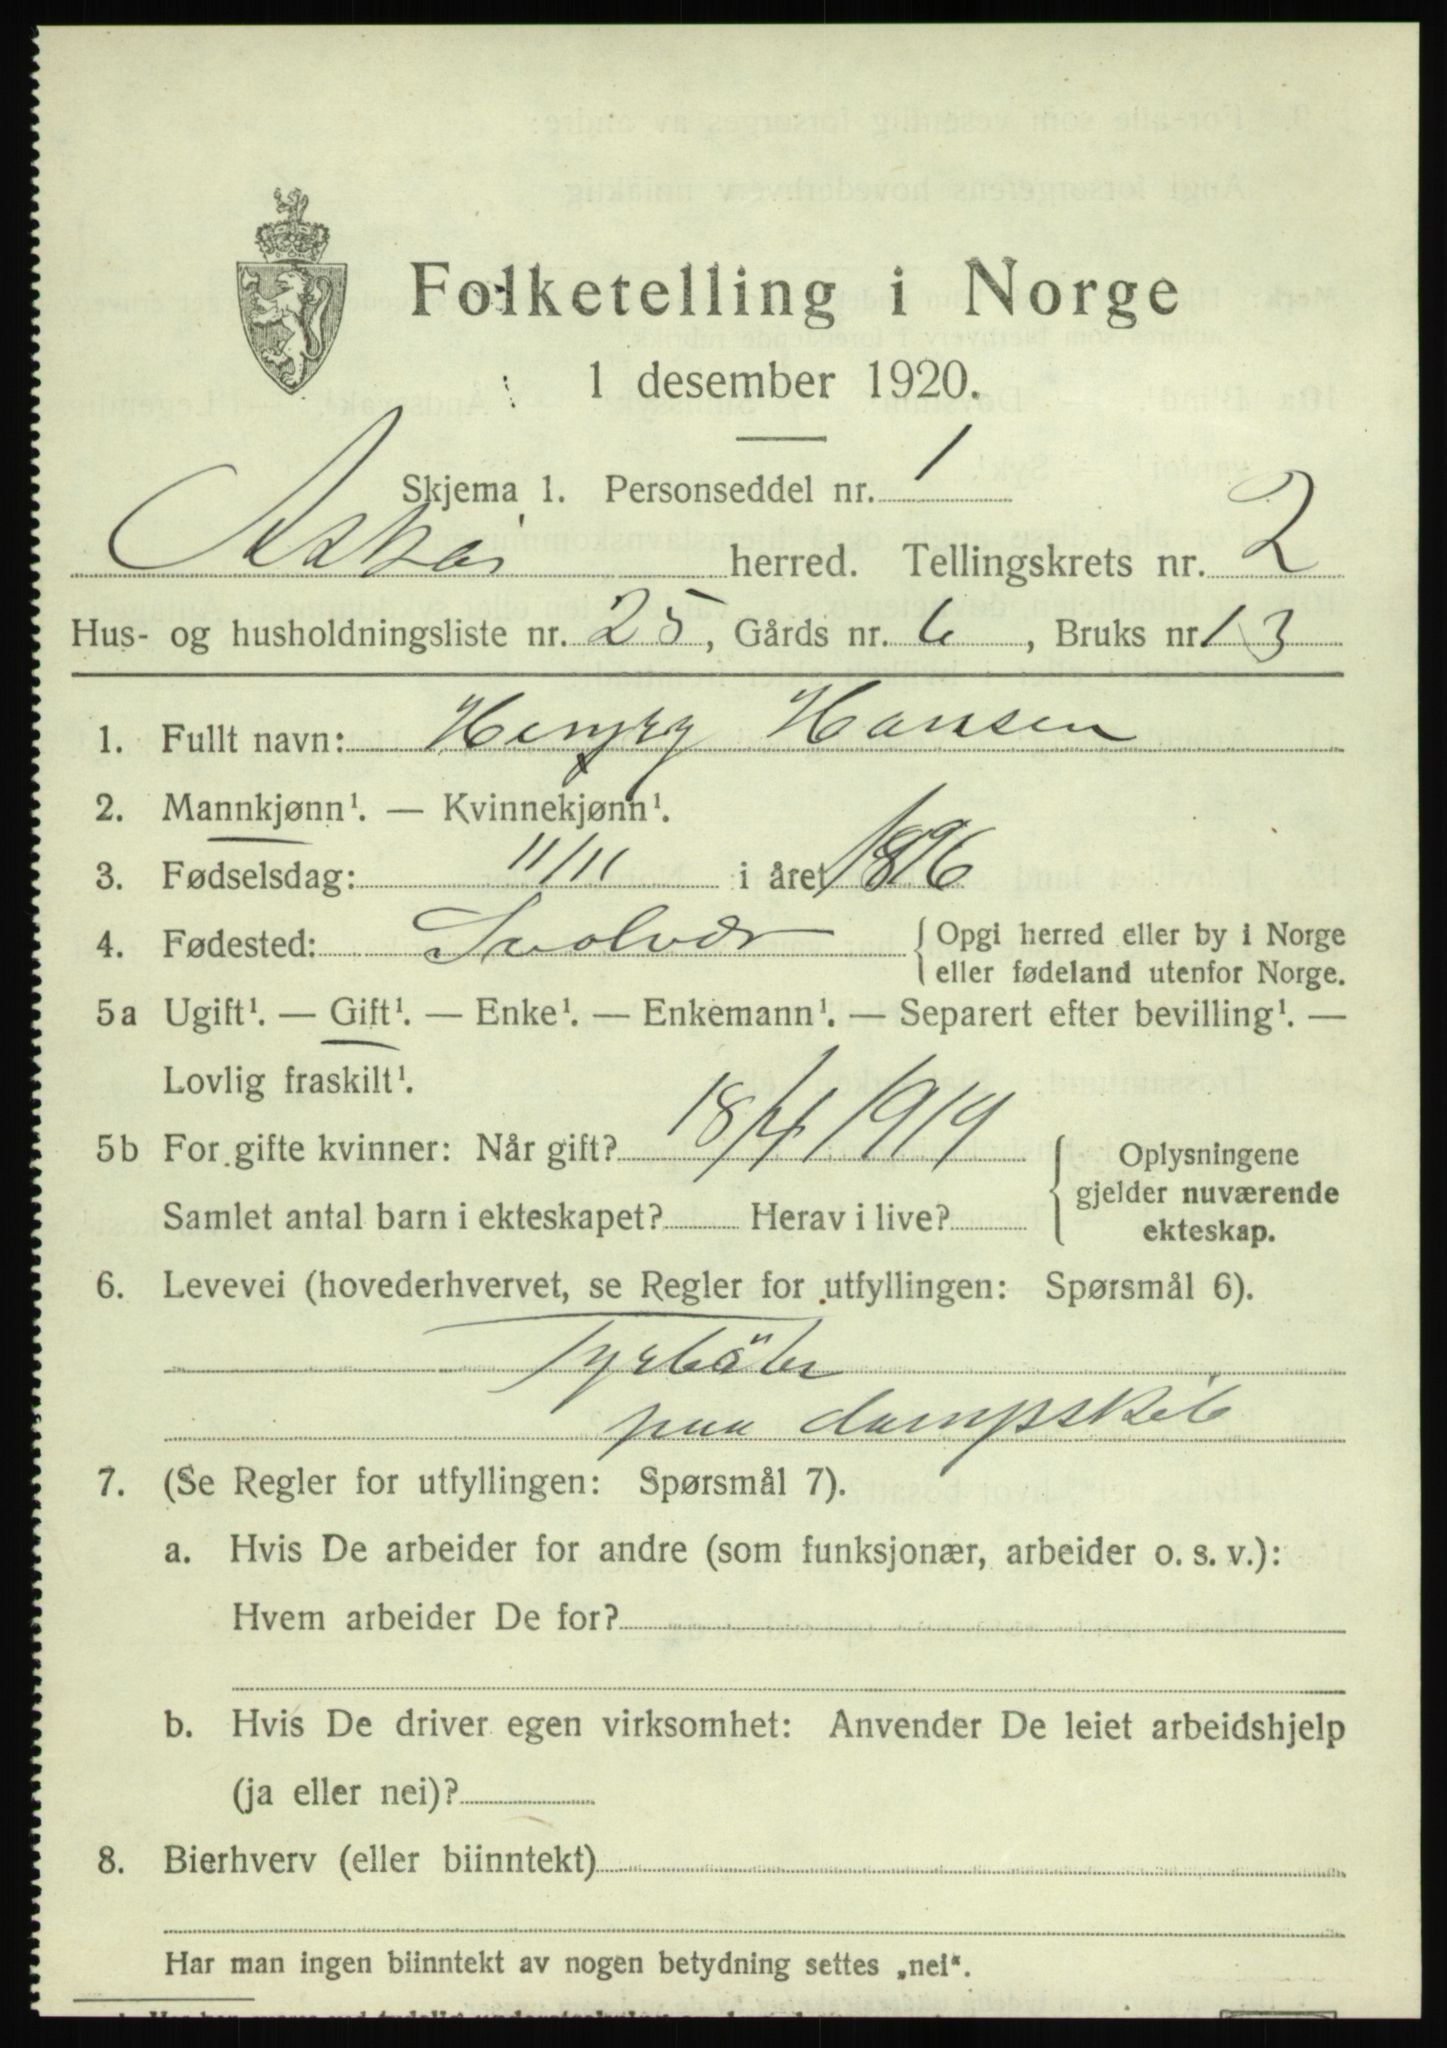 Folketelling i Norge
1 desember 1920.
Skjema 1. Personseddel nr. 1
Askøi herred. Tellingskrets nr. 2
Hus- og husholdningsliste nr. 25, Gårds nr. 6, Bruks nr. 13
1. Fullt navn: Henry Hansen
2. Mannkjønn¹. — Kvinnekjønn¹.
3. Fødselsdag: 11/11 i året 1896
4. Fødested: Svolvær {Opgi herred eller by i Norge
eller fødeland utenfor Norge.
5a Ugift¹. — Gift¹. — Enke¹. — Enkemann¹. — Separert efter bevilling¹. —
Lovlig fraskilt¹.
5b For gifte kvinner: Når gift? 18/4 1919
Samlet antal barn i ekteskapet? Herav i live?
{Oplysningene
gjelder nuværende
ekteskap.
6. Levevei (hovederhvervet, se Regler for utfyllingen: Spørsmål 6).
Fyrböter
paa dampskib
7. (Se Regler for utfyllingen: Spørsmål 7).
a. Hvis De arbeider for andre (som funksjonær, arbeider o. s. v.):
Hvem arbeider De for?
b. Hvis De driver egen virksomhet: Anvender De leiet arbeidshjelp
(ja eller nei)?
8. Bierhverv (eller biinntekt)
Har man ingen biinntekt av nogen betydning settes „nei“.